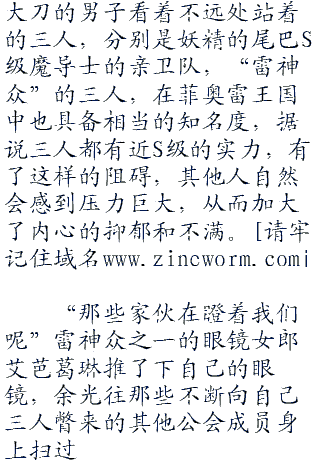 大刀的男子看着不远处站着
的三人，分别是妖精的尾巴S
级魔导士的亲卫队，“雷神
众”的三人，在菲奥雷王国
中也具备相当的知名度，据
说三人都有近S级的实力，有
了这样的阻碍，其他人自然
会感到压力巨大，从而加大
了内心的抑郁和不满。[请牢
记住域名www.zincworm.com|
“那些家伙在蹬着我们
呢”雷神众之一的眼镜女郎
艾芭葛琳推了下自己的眼
镜，余光往那些不断向自己
三人瞥来的其他公会成员身
上扫过